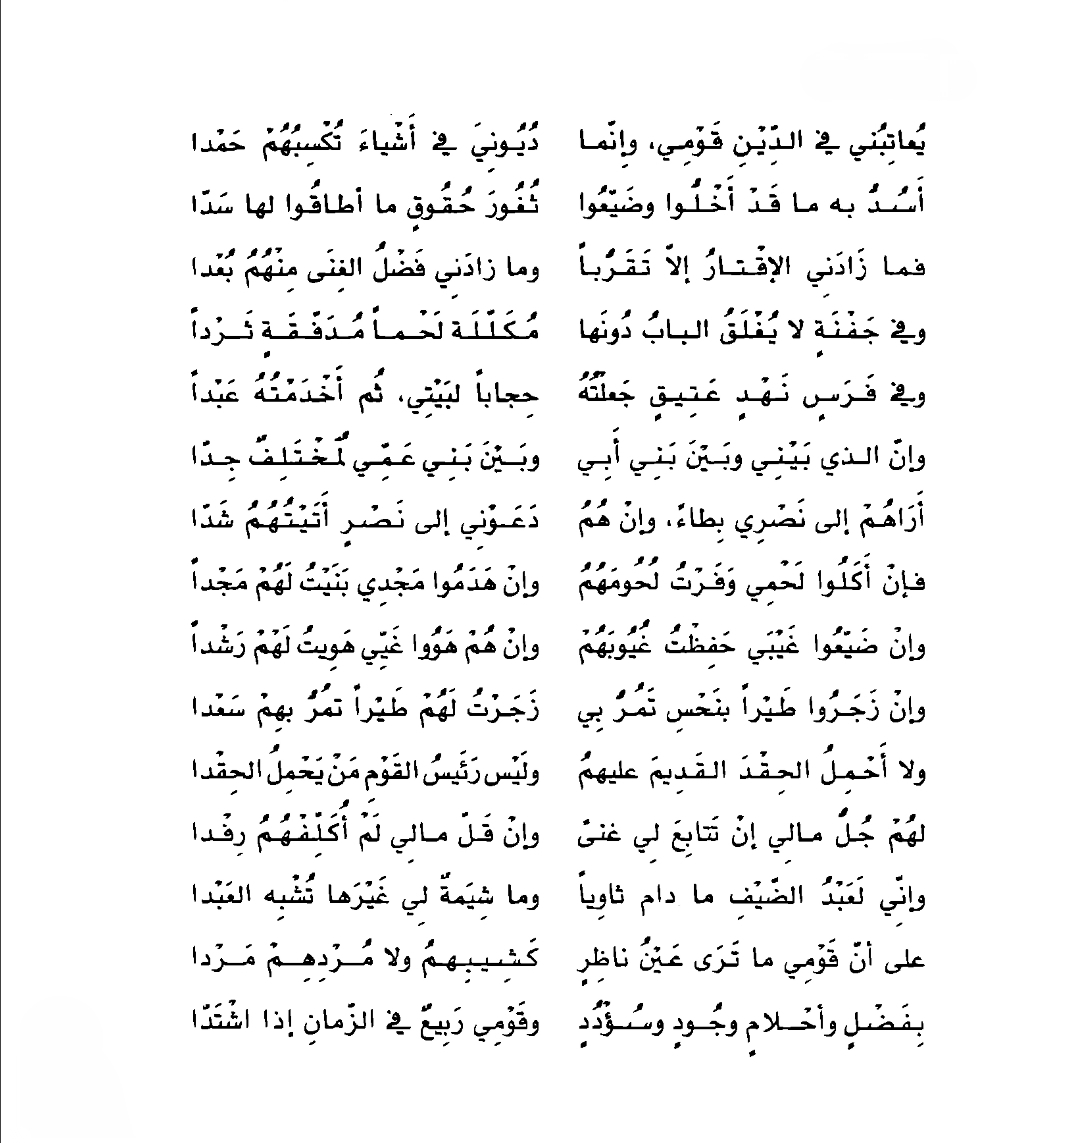 يُعاتِبُني في الدَّيْنِ قَوْمي، وإنّما دُيُونيَ في أَشْياءَ تُكْسِبُهُمْ حَمْدا
أَسُدُّ به ما قَدْ أَخَلُّوا وضَيّعُوا ثُغُورَ حُقُوقٍ ما أطاقُوا لها سَدّا
فما زَادَني الإقْتارُ إلاّ تَقَرُّباً وما زادَني فَضْلُ الغِنَى مِنْهُمُ بُعْدا
وفي جَفْنَةٍ لا يُغْلَقُ البابُ دُونَها مُكَلَّلَة لَحْماً مُدَفَّقَةٍ ثَرْداً
وفي فَرَسٍ نَهْدٍ عَتِيقٍ جَعَلْتُهُ حِجاباً لبَيْتِي، ثُم أَخْدَمْتُهُ عَبْداً
وإنّ الذي بَيْنِي وبَيْنَ بَنِي أَبِي وبَيْنَ بَنِي عَمِّي لَمُخْتَلِفٌ جِدّا
أَرَاهُمْ إلى نَصْرِي بِطاءً، وإنْ هُمُ دَعَوْني إلى نَصْرٍ أَتَيْتُهُمُ شَدّا
فإنْ أَكَلُوا لَحْمِي وَفَرْتُ لُحُومَهُمْ وإنْ هَدَمُوا مَجْدِي بَنَيْتُ لَهُمْ مَجْداً
وإنْ ضَيّعُوا غَيْبَي حَفِظْتُ غُيُوبَهُمْ وإنْ هُمْ هَوُوا غَيّي هَوِيتُ لَهُمْ رَشْداً
وإنْ زَجَرُوا طَيْراً بنَحْسٍ تَمُرُّ بِي زَجَرْتُ لَهُمْ طَيْراً تمُرُّ بهِمْ سَعْدا
ولا أَحْمِلُ الحِقْدَ القَدِيمَ عليهِمُ ولَيْس رَئَيسُ القَوْمِ مَنْ يَحْمِلُ الحِقْدا
لهُمْ جُلُّ مالي إنْ تَتابَعَ لي غنىً وإنْ قَلّ مالي لَمْ أُكَلّفْهُمُ رِفْدا
وإنّي لَعَبْدُ الضّيْفِ ما دام ثاوِياً وما شِيَمةٌ لي غَيْرَها تُشْبِه العَبْدا
على أنّ قَوْمِي ما تَرَى عَيْنُ ناظِرٍ كَشِيبِهِمُ ولا مُرْدِهِمْ مَرْدا
بِفَضْلٍ وأحْلامٍ وجُودٍ وسُؤْدُدٍ وقَوْمِي رَبِيعٌ في الزّمانِ إذا اشْتَدّا